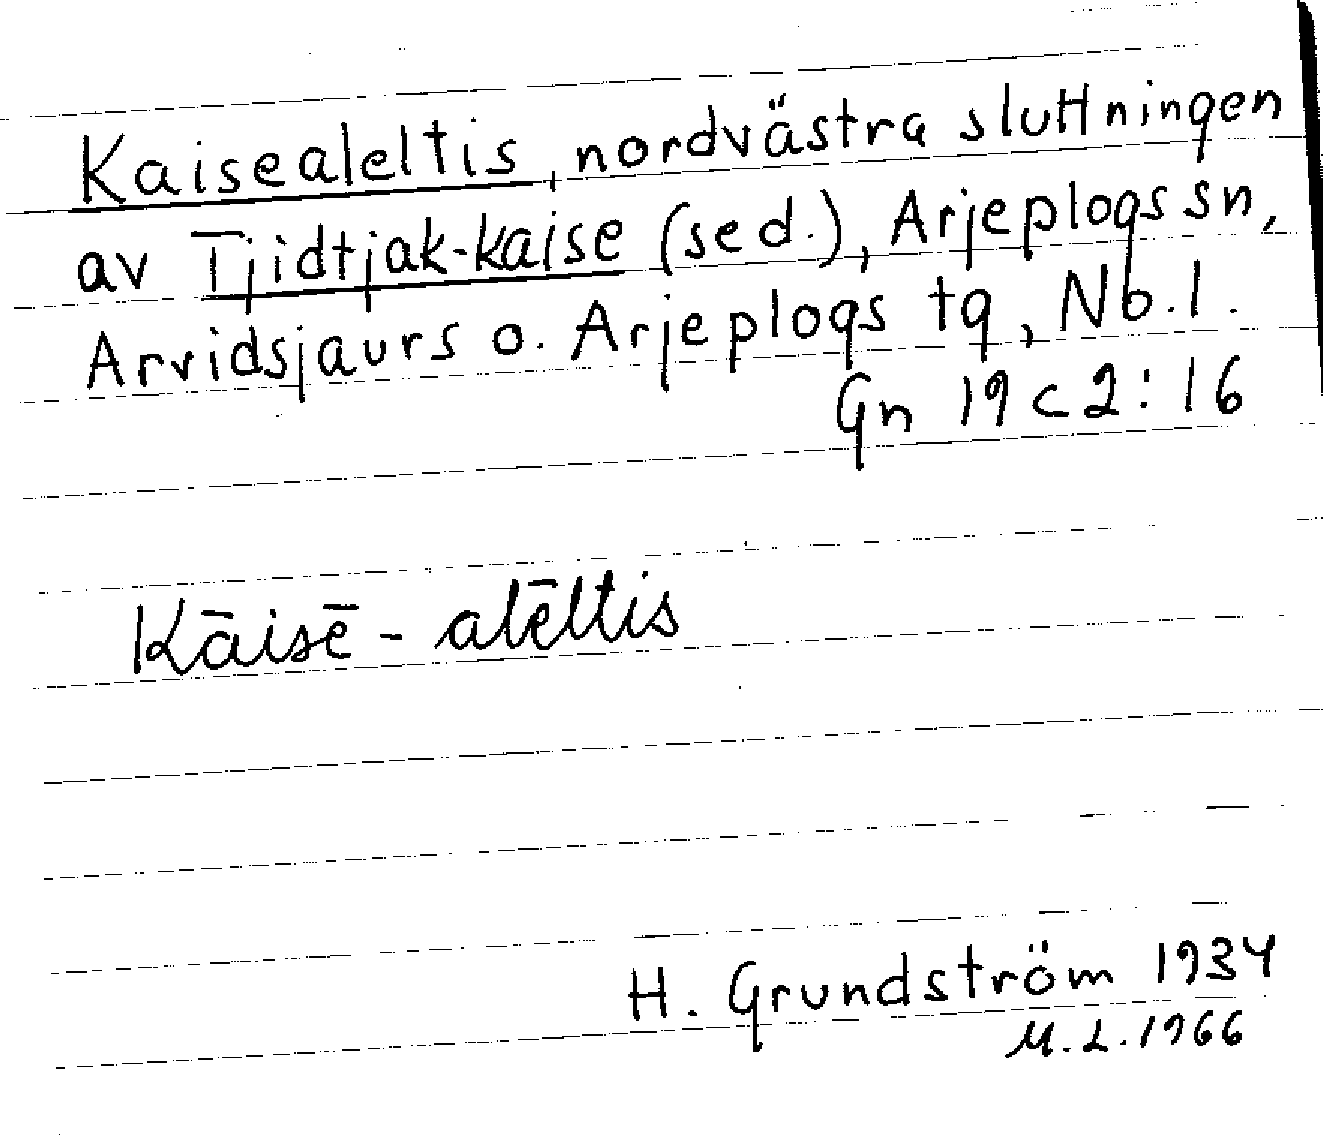 Kaisealeltis, nordvästra sluttningen
av Tjidtjak-kaise (sed.), Arjeplogs sn,
Arvidsjaurs o. Arjeplogs tg, Nb.l.
Gn 19 c 2:16
Kāisē - alēltis
H. Grundström 1934
M.L.1966